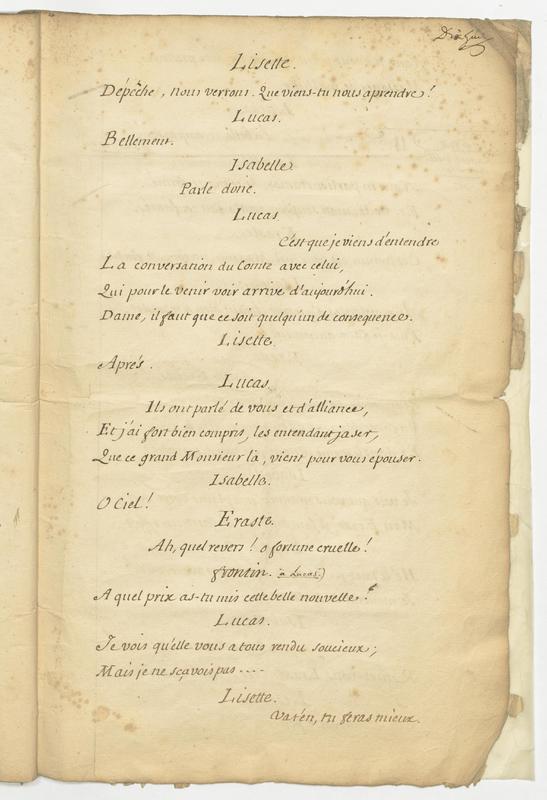 Lisette.
Dépêche, nous verrons. Que viens-tu nous aprendre!
Lucas.
Bellement.
Isabelle
Parle donc.
Lucas
C'est que je viens d'entendre
La conversation du Comte avec celui,
Qui pour le venir voir arrive d'aujourd'hui.
Dame, il faut que ce soit quelqu'un de consequence.
Lisette.
Aprés.
Lucas.
Ils ont parlé de vous et d'alliance,
Et j'ai fort bien compris, les entendant jaser,
Que ce grand Monsieur là, vient pour vous épouser.
Isabelle.
O Ciel!
Eraste.
Ah, quel revers! o fortune cruelle!
frontin. (a Lucas.)
A quel prix as-tu mis cette belle nouvelle?
Lucas.
Je vois qu'elle vous a tous rendu soucieux;
Mais je ne sçavois pas ----
Lisette.
Va t'en, tu feras mieux.